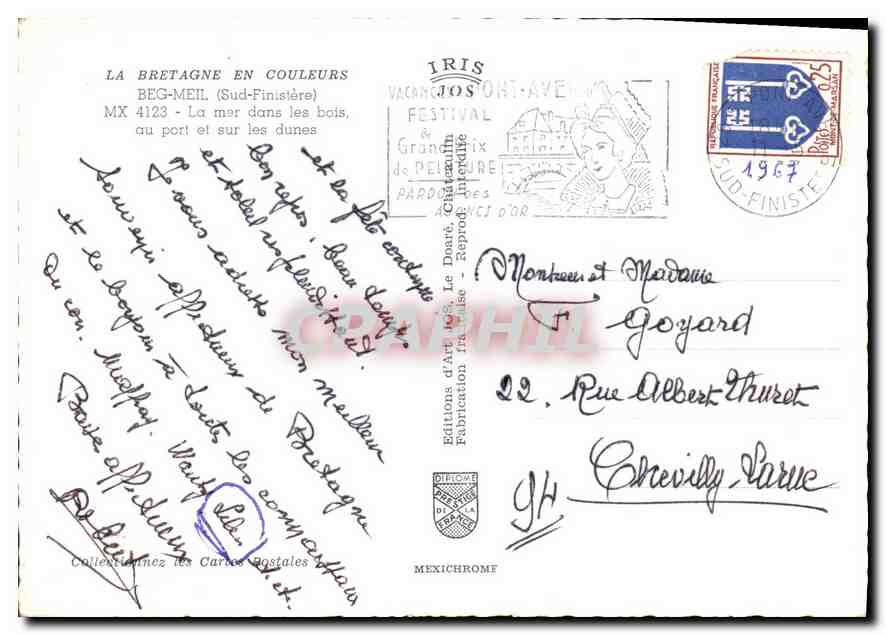 LA BRETAGNE EN COULEURS
BEG-MEIL (Sud-Finistère)
MX 4123 - La mer dans les bois,
au port et sur les dunes
IRIS
JOS
VACANCES PONT-AVEN
FESTIVAL
&
Grand Prix
de PEINTURE
PARDON des
AJONCS D'OR
REPUBLIQUE FRANÇAISE
0,25
POSTES
MONT-DE-MARSAN
1967
SUD-FINISTERE
Editions d'Art JOS, Le Doaré, Châteaulin
Fabrication française - Reprod. Interdite
et la fête continue
bon repos, beau temps
et soleil resplendissant.
Je vous adresse mon meilleur
souvenir affectueux de Bretagne
et le bonjour à toutes les connaissances
Bises affectueuses
Monsieur et Madame
F Goyard
22, Rue Albert Thuret
Chevilly-Larue
94
DIPLOME
PRESTIGE
DE LA
FRANCE
Collectionnez les Cartes Postales
MEXICHROME
CRAPHIL